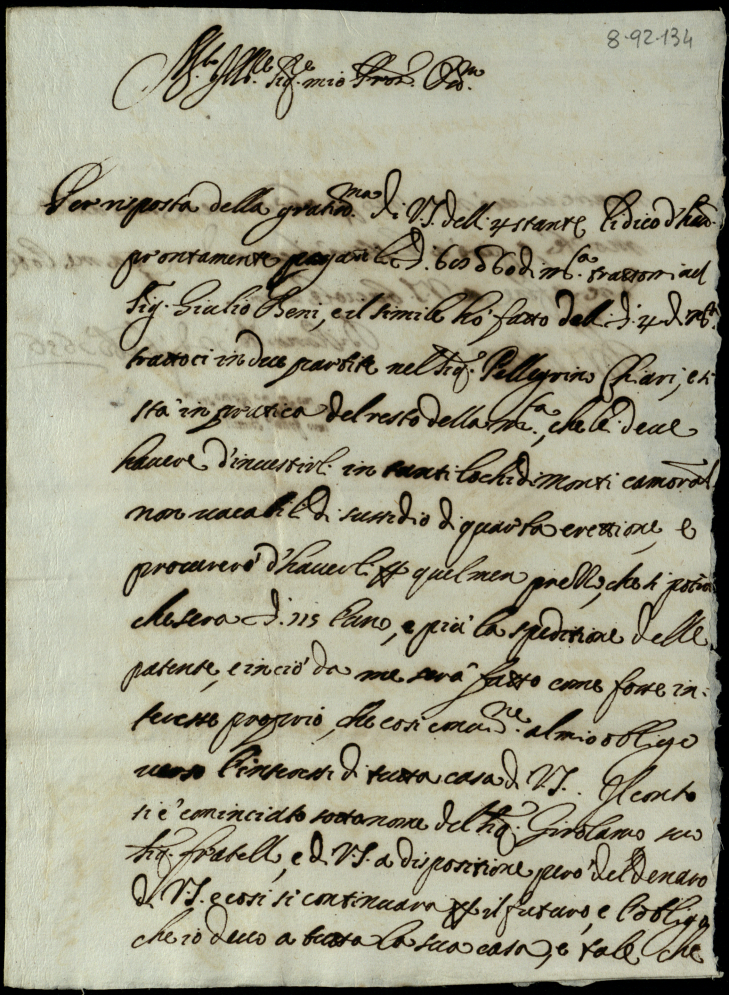 8-92-134
M.to Ill.re Sig.re mio Pron. Oss.mo
Per risposta della gratiss.ma di V.S. dell. 4 stante li dico d'haver
prontamente pagati li d. 60 di m.ta trattomi nel
Sig. Giulio Beni, e il simile hò fatto delli d. 4 di m.ta
trattoci in due partite nel Sig.r Pellegrino Chiari, e si
stà in pratica del resto della m.ta, che le deve
havere d'investirli in tanti lochi di monti camorali
non vacabili di sussidio di quarta erettione, e
procurerò d'haverli quel men prezzo, che si potrà
che sera d. 115 l'uno, e più la speditione delle
patente, e in ciò da me serà fatto come fosse in-
teresse proprio, che così conv.ne al mio obligo
verso l'interessi di tutta casa di V.S. Il conto
si è cominciato sotto nome del Sig.r Girolamo suo
Sig. fratello, e di V.S. a dispositione però del denaro
di V.S. e così si continuara il futuro, e l'obligo
che io devo a tutta la sua casa, e tale che